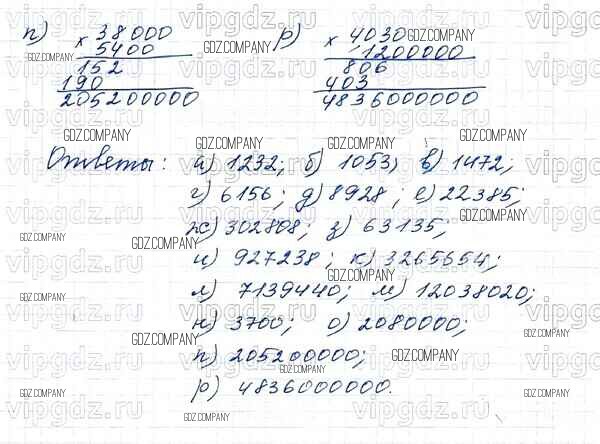 п) 38000
× 5400
152
190
205200000
р) 4030
× 1200000
806
403
4836000000
Ответы: а) 1232; б) 1053; в) 1472;
г) 6156; д) 8928; е) 22385;
ж) 302808; з) 63135;
и) 927238; к) 3265654;
л) 7139440; м) 12038020;
н) 3700; о) 2080000;
п) 205200000;
р) 4836000000.
vipgdz.ru
GDZ.COMPANY